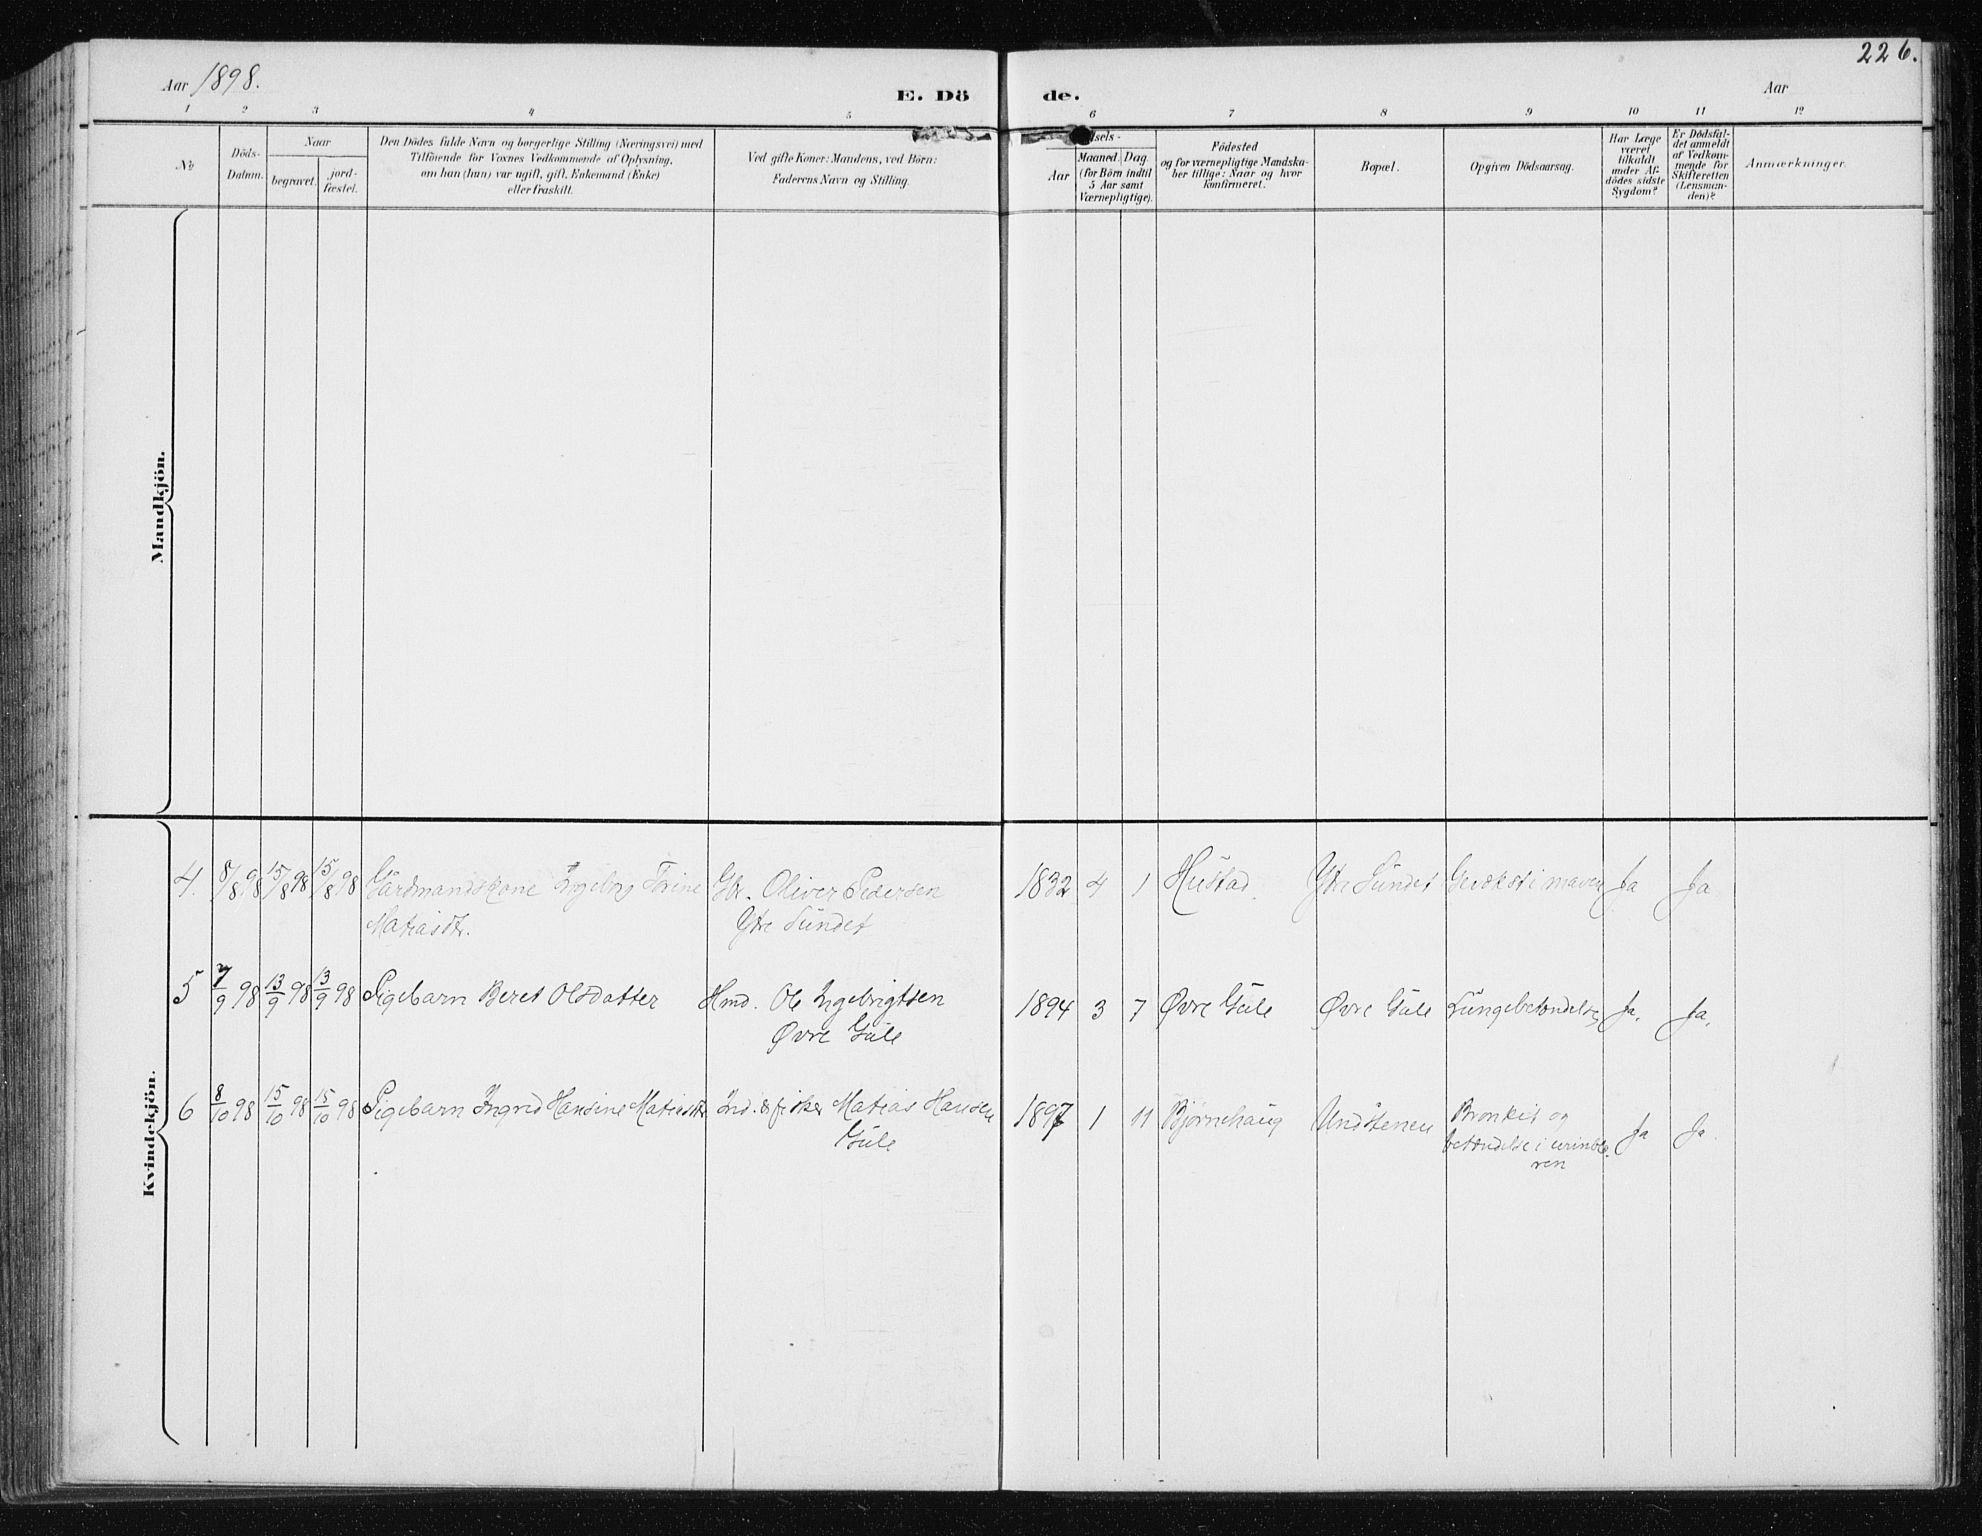 226.
Aar 1898.
E. Dö de.
Aar
1 2 3 4 5 6 7 8 9 10 11 12
No
Döds-
Datum.
Naar
begravet.
jord-
fæstet.
Den Dödes fulde Navn og borgerlige Stilling (Næringsvei) med
Tilföiende for Voxnes Vedkommende af Oplysning,
om han (hun) var ugift, gift, Enkemand (Enke)
eller fraskilt.
Ved gifte Koner: Mandens, ved Börn:
Faderens Navn og Stilling.
dsels-
Aar
Maaned. Dag.
(for Börn indtil
5 Aar samt
Værnepligtige).
Födested
og for værnepligtige Mandska-
ber tillige: Naar og hvor
konfirmeret.
Bopæl.
Opgiven Dödsaarsag.
Har Læge
været
tilkaldt
under Af-
dödes sidste
Sygdom?
Er Dödsfal-
det anmeldt
af Vedkom-
mende for
Skifteretten
(Lensman-
den)?
Anmærkninger.
Mandkjön.
Kvindekjön.
4. 8/8 98 15/8 98 15/8 98 Gårdmandskone Ingeborg Torine Gbr. Oliver Pedersen 1832 4 1 Hustad. Ytre Sundet Gevækst i maven Ja Ja
Matiasdtr. Ytre Sundet
5 7/9 98 13/9 98 13/9 98 Pigebarn Beret Olsdatter Hmd. Ole Ingebrigtsen 1894 3 7 Øvre Gule Øvre Gule Lungebetændelse Ja. Ja.
Øvre Gule
6 8/10 98 15/10 98 15/10 98 Pigebarn Ingrid Hansine Matiasdtr. Ind. & fisker Matias Hansen 1897 1 11 Bjørnehaug Undstenen Bronkit og
Gule betændelse i urinblæ- Ja Ja
ren